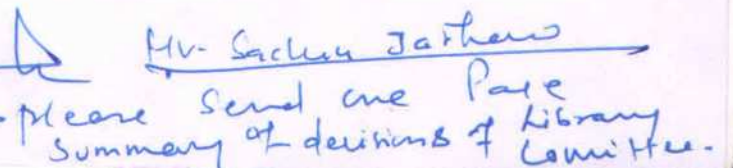 Mr. Sachin Jadhav
please send one Page
summary of decisions of Library
Committee.